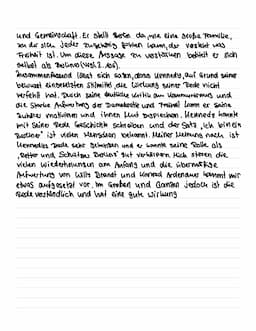 und Gemeinschaft. Er stellt Berlin da, wie eine große Familie,
zu der sich jeder zugehörig fühlen kann, der versteht was
Freiheit ist. Um diese Aussage zu verstärken betitelt er sich
selbst als Berliner (vgl. Z. ).
Zusammenfassend lässt sich sagen, dass Kennedy, auf Grund seiner
bewusst eingesetzten Stilmittel, die Wirkung seiner Rede nicht
verfehlt hat. Durch seine deutliche Kritik am Kommunismus und
die starke Aufwertung der Demokratie und Freiheit kann er seine
Zuhörer motivieren und ihnen Mut zusprechen. Kennedy konnte
mit seiner Rede Geschichte schreiben und der Satz „Ich bin ein
Berliner" ist vielen Menschen bekannt. Meiner Meinung nach ist
Kennedys Rede sehr gelungen und er konnte seine Rolle als
„Retter und Schützer Berlins" gut verkörpern. Mich stören die
vielen Wiederholungen am Anfang und die übermäßige
Aufwertung von Willy Brandt und Konrad Adenauer kommt mir
etwas aufgesetzt vor. Im Großen und Ganzen jedoch ist die
Rede verständlich und hat eine gute Wirkung